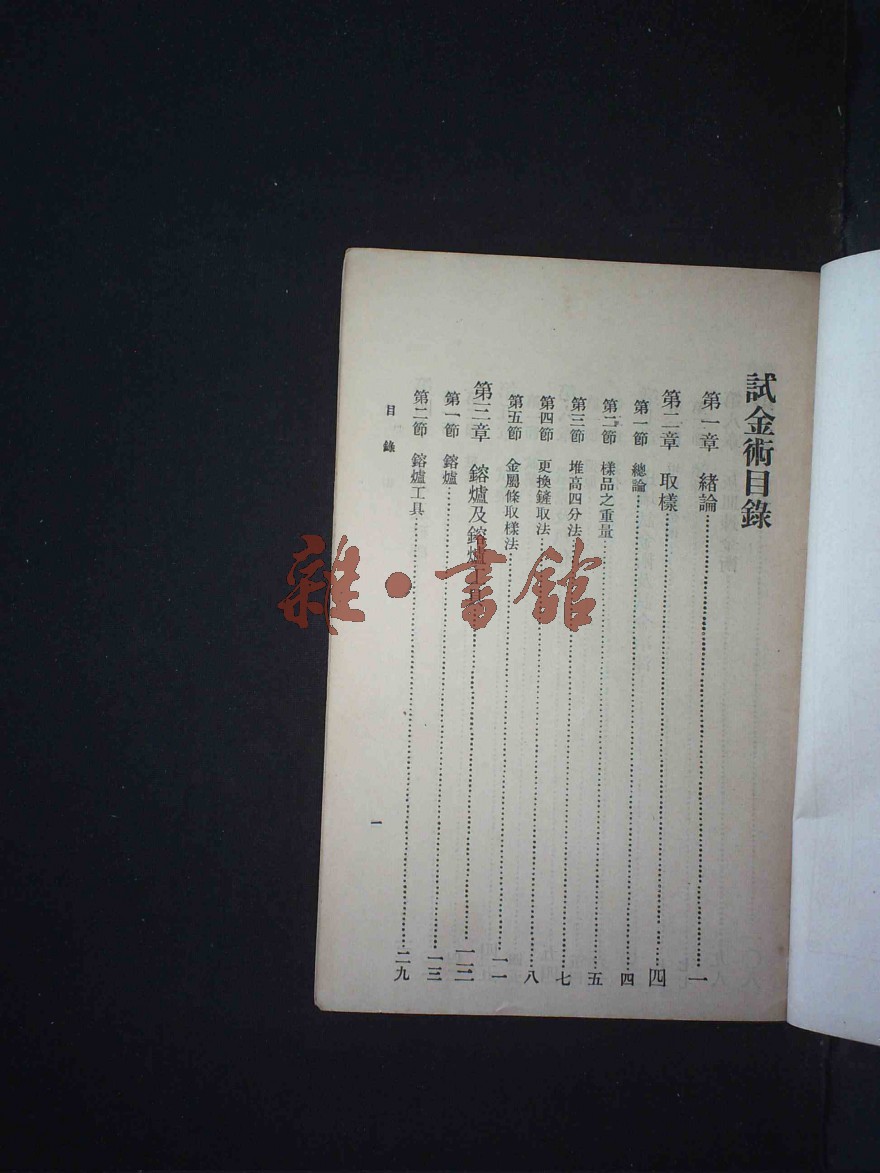 試金術目錄
第一章 緒論………一
第二章 取樣………四
第一節 總論………四
第二節 樣品之重量………五
第三節 堆高四分法………七
第四節 更換鏟取法………八
第五節 金屬條取樣法………一一
第三章 鎔爐及鎔爐工具………一二
第一節 鎔爐………一三
第二節 鎔爐工具………二九
目錄
一
雜·書館